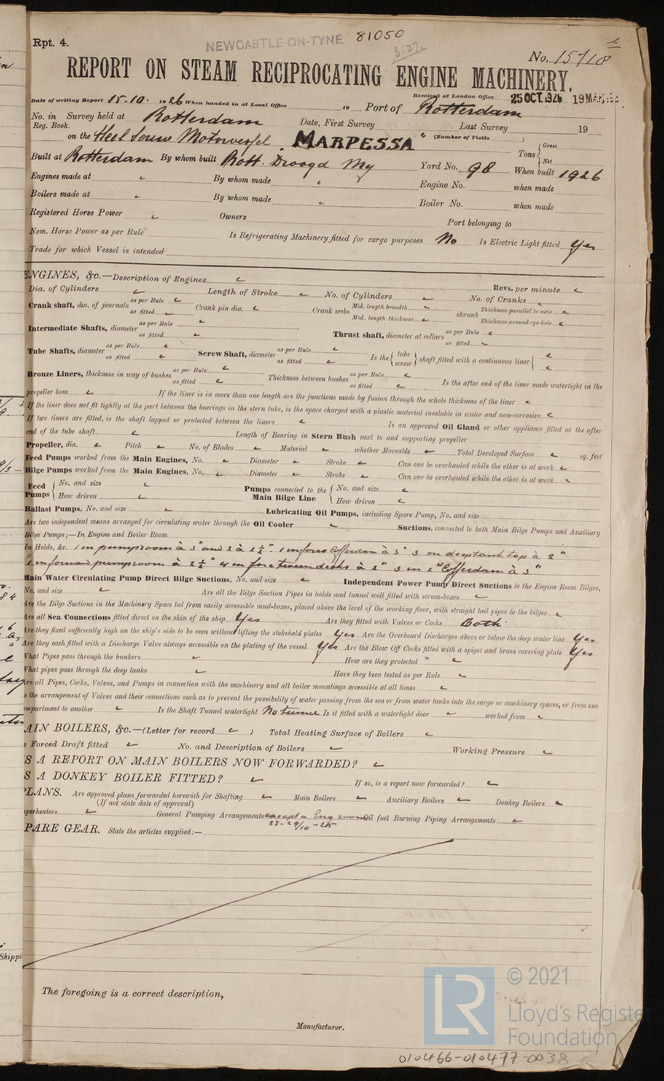 Rpt. 4.
NEWCASTLE-ON-TYNE 81050
3.27
No. 15718
REPORT ON STEAM RECIPROCATING ENGINE MACHINERY.
Received at London Office 25 OCT. 1926 19 MAR
Date of writing Report 15.10. 1926 When handed in at Local Office 19 Port of Rotterdam
No. in Reg. Book. Survey held at Rotterdam Date, First Survey Last Survey 19
on the Steel Screw Motorvessel "MARPESSA" (Number of Visits )
Tons { Gross Net
Built at Rotterdam By whom built Rott. Droogd My Yard No. 98 When built 1926
Engines made at By whom made Engine No. when made
Boilers made at By whom made Boiler No. when made
Registered Horse Power Owners Port belonging to
Nom. Horse Power as per Rule Is Refrigerating Machinery fitted for cargo purposes No Is Electric Light fitted Yes
Trade for which Vessel is intended
ENGINES, &c.—Description of Engines Revs. per minute
Dia. of Cylinders Length of Stroke No. of Cylinders No. of Cranks
Crank shaft, dia. of journals as per Rule as fitted Crank pin dia. Crank webs Mid. length breadth Mid. length thickness shrunk Thickness parallel to axis Thickness around eye-hole
Intermediate Shafts, diameter as per Rule as fitted Thrust shaft, diameter at collars as per Rule as fitted
Tube Shafts, diameter as per Rule as fitted Screw Shaft, diameter as per Rule as fitted Is the { tube screw } shaft fitted with a continuous liner {
Bronze Liners, thickness in way of bushes as per Rule as fitted Thickness between bushes as per Rule as fitted Is the after end of the liner made watertight in the
propeller boss If the liner is in more than one length are the junctions made by fusion through the whole thickness of the liner
If the liner does not fit tightly at the part between the bearings in the stern tube, is the space charged with a plastic material insoluble in water and non-corrosive
If two liners are fitted, is the shaft lapped or protected between the liners Is an approved Oil Gland or other appliance fitted at the after
end of the tube shaft Length of Bearing in Stern Bush next to and supporting propeller
Propeller, dia. Pitch No. of Blades Material whether Moveable Total Developed Surface sq. feet
Feed Pumps worked from the Main Engines, No. Diameter Stroke Can one be overhauled while the other is at work
Bilge Pumps worked from the Main Engines, No. Diameter Stroke Can one be overhauled while the other is at work
Feed Pumps { No. and size How driven Pumps connected to the Main Bilge Line { No. and size How driven
Ballast Pumps, No. and size Lubricating Oil Pumps, including Spare Pump, No. and size
Are two independent means arranged for circulating water through the Oil Cooler Suctions, connected to both Main Bilge Pumps and Auxiliary
Bilge Pumps;—In Engine and Boiler Room
In Holds, &c. 1 in pumproom à 3" and 2 à 2½". 1 in fore cofferdam à 3" 3 on deeptank top à 2"
1 in forward pumproom à 2½" 4 in fore tweendecks à 2" 3 in 2nd Cofferdam à 3"
Main Water Circulating Pump Direct Bilge Suctions, No. and size Independent Power Pump Direct Suctions to the Engine Room Bilges,
No. and size Are all the Bilge Suction Pipes in holds and tunnel well fitted with strum-boxes
Are the Bilge Suctions in the Machinery Space led from easily accessible mud-boxes, placed above the level of the working floor, with straight tail pipes to the bilges
Are all Sea Connections fitted direct on the skin of the ship Yes Are they fitted with Valves or Cocks Both
Are they fixed sufficiently high on the ship's side to be seen without lifting the stokehold plates Yes Are the Overboard Discharges above or below the deep water line Yes
Are they each fitted with a Discharge Valve always accessible on the plating of the vessel Yes Are the Blow Off Cocks fitted with a spigot and brass covering plate Yes
What Pipes pass through the bunkers How are they protected
What pipes pass through the deep tanks Have they been tested as per Rule
Are all Pipes, Cocks, Valves, and Pumps in connection with the machinery and all boiler mountings accessible at all times
Is the arrangement of Valves and their connections such as to prevent the possibility of water passing from the sea or from water tanks into the cargo or machinery spaces, or from one
compartment to another Is the Shaft Tunnel watertight No tunnel Is it fitted with a watertight door worked from
MAIN BOILERS, &c.—(Letter for record ) Total Heating Surface of Boilers
Is Forced Draft fitted No. and Description of Boilers Working Pressure
IS A REPORT ON MAIN BOILERS NOW FORWARDED?
IS A DONKEY BOILER FITTED? If so, is a report now forwarded?
PLANS. Are approved plans forwarded herewith for Shafting Main Boilers Auxiliary Boilers Donkey Boilers
(If not state date of approval)
Superheaters General Pumping Arrangements except in Eng. room Oil fuel Burning Piping Arrangements
SPARE GEAR. State the articles supplied:—
The foregoing is a correct description,
Manufacturer.
LR
© 2021
Lloyd's Register
Foundation
010466-010477-0038